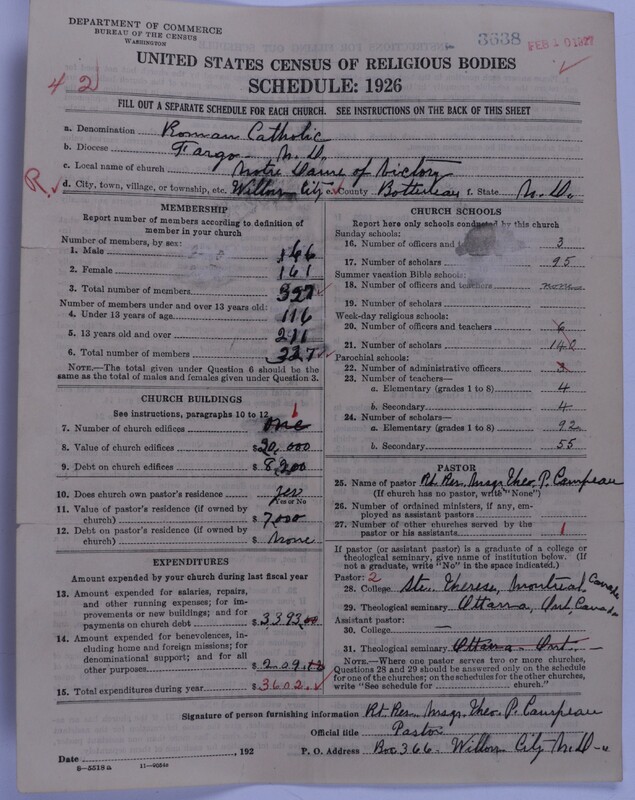 DEPARTMENT OF COMMERCE
BUREAU OF THE CENSUS
WASHINGTON
3638
FEB 10 1927
UNITED STATES CENSUS OF RELIGIOUS BODIES
SCHEDULE: 1926
4 2
FILL OUT A SEPARATE SCHEDULE FOR EACH CHURCH. SEE INSTRUCTIONS ON THE BACK OF THIS SHEET
a. Denomination Roman Catholic
b. Diocese Fargo N. D.
c. Local name of church Notre Dame of Victory
R.
d. City, town, village, or township, etc. Willow City e. County Bottineau f. State N. D.
MEMBERSHIP
Report number of members according to definition of
member in your church
Number of members, by sex:
1. Male 166
2. Female 161
3. Total number of members 327
Number of members under and over 13 years old:
4. Under 13 years of age 116
5. 13 years old and over 211
6. Total number of members 327
NOTE.—The total given under Question 6 should be the
same as the total of males and females given under Question 3.
CHURCH BUILDINGS
See instructions, paragraphs 10 to 12
1
7. Number of church edifices one
8. Value of church edifices $20,000
9. Debt on church edifices $8,200
10. Does church own pastor's residence yes
Yes or No
11. Value of pastor's residence (if owned by
church) $7,000
12. Debt on pastor's residence (if owned by
church) $ none
EXPENDITURES
Amount expended by your church during last fiscal year
13. Amount expended for salaries, repairs,
and other running expenses; for im-
provements or new buildings; and for
payments on church debt $3393.00
14. Amount expended for benevolences, in-
cluding home and foreign missions; for
denominational support; and for all
other purposes $209
15. Total expenditures during year $3602
CHURCH SCHOOLS
Report here only schools conducted by this church
Sunday schools:
16. Number of officers and 3
17. Number of scholars 95
Summer vacation Bible schools:
18. Number of officers and teachers none
19. Number of scholars
Week-day religious schools:
20. Number of officers and teachers 6
21. Number of scholars 140
Parochial schools:
22. Number of administrative officers 3
23. Number of teachers—
a. Elementary (grades 1 to 8) 4
b. Secondary 4
24. Number of scholars—
a. Elementary (grades 1 to 8) 92
b. Secondary 55
PASTOR
25. Name of pastor Rt. Rev. Msgr. Theo. P. Campeau
(If church has no pastor, write "None")
26. Number of ordained ministers, if any, em-
ployed as assistant pastors
27. Number of other churches served by the
pastor or his assistants 1
If pastor (or assistant pastor) is a graduate of a college or
theological seminary, give name of institution below. (If
not a graduate, write "No" in the space indicated.)
Pastor: 2
28. College Ste. Therese, Montreal Canada
29. Theological seminary Ottawa, Ont. Canada
Assistant pastor:
30. College —
31. Theological seminary Ottawa Ont. —
NOTE.—Where one pastor serves two or more churches,
Questions 28 and 29 should be answered only on the schedule
for one of the churches; on the schedules for the other churches,
write "See schedule for church."
Signature of person furnishing information Rt. Rev. Msgr. Theo. P. Campeau
Official title Pastor
Date , 192 P. O. Address Box 366 Willow City N. D.
8—5518a 11—9554c